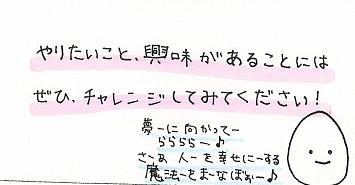 やりたいこと、興味があることには
ぜひ、チャレンジしてみてください!
夢ーに向かってー
ららららー♪
さーあ人ーを幸せにーする
魔法ーをまーなぼおー♪